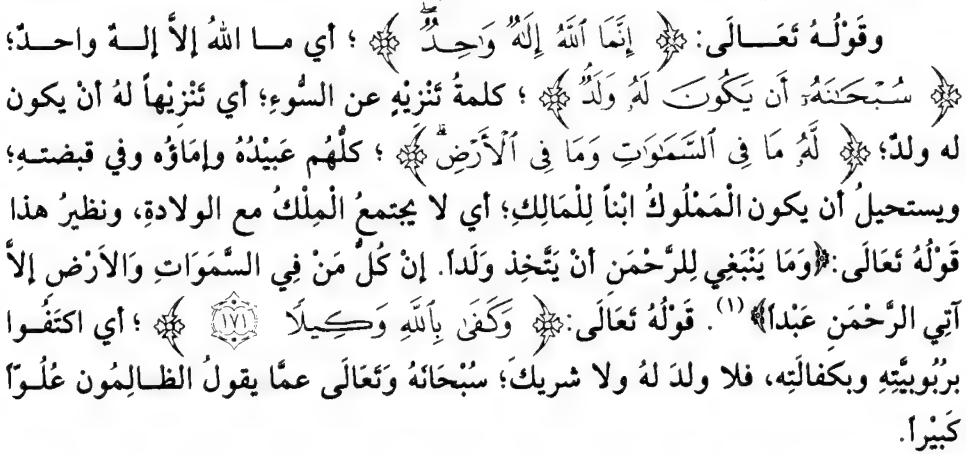 وقَوْلُـهُ تَعَــالَى: ﴿ إِنَّمَا ٱللَّهُ إِلَٰهٌ وَٰحِدٌۖ ﴾ ؛ أي مـا اللهُ إلاَّ إلـهٌ واحـدٌ؛
﴿ سُبْحَٰنَهُۥٓ أَن يَكُونَ لَهُۥ وَلَدٌ ﴾ ؛ كلمةُ تَنْزِيْهٍ عن السُّوءِ؛ أي تَنْزِيْهاً لهُ أنْ يكون
له ولدٌ؛ ﴿ لَّهُۥ مَا فِى ٱلسَّمَٰوَٰتِ وَمَا فِى ٱلْأَرْضِۗ ﴾ ؛ كلُّهُم عَبِيْدُهُ وإمَاؤُه وفي قبضتـهِ؛
ويستحيلُ أن يكون الْمَمْلُوكُ ابْناً لِلْمَالِكِ؛ أي لا يجتمعُ الْمِلْكُ مع الولادةِ، ونظيرُ هذا
قَوْلُهُ تَعَالَى:﴿وَمَا يَنْبَغِي لِلرَّحْمَنِ أنْ يَتَّخِذ وَلَداً. إنْ كُلُّ مَنْ فِي السَّمَوَاتِ وَالأَرْضِ إلاَّ
آتِي الرَّحْمَنِ عَبْداً﴾(١). قَوْلُهُ تَعَالَى:﴿ وَكَفَىٰ بِٱللَّهِ وَكِيلًا ١٧١ ﴾ ؛ أي اكتَفُـوا
برُبُوبيَّتِهِ وبكفالَتِه، فلا ولدَ لهُ ولا شريكَ؛ سُبْحَانَهُ وَتَعَالَى عمَّا يقولُ الظـالِمُون عُلُـوّاً
كَبيْراً.